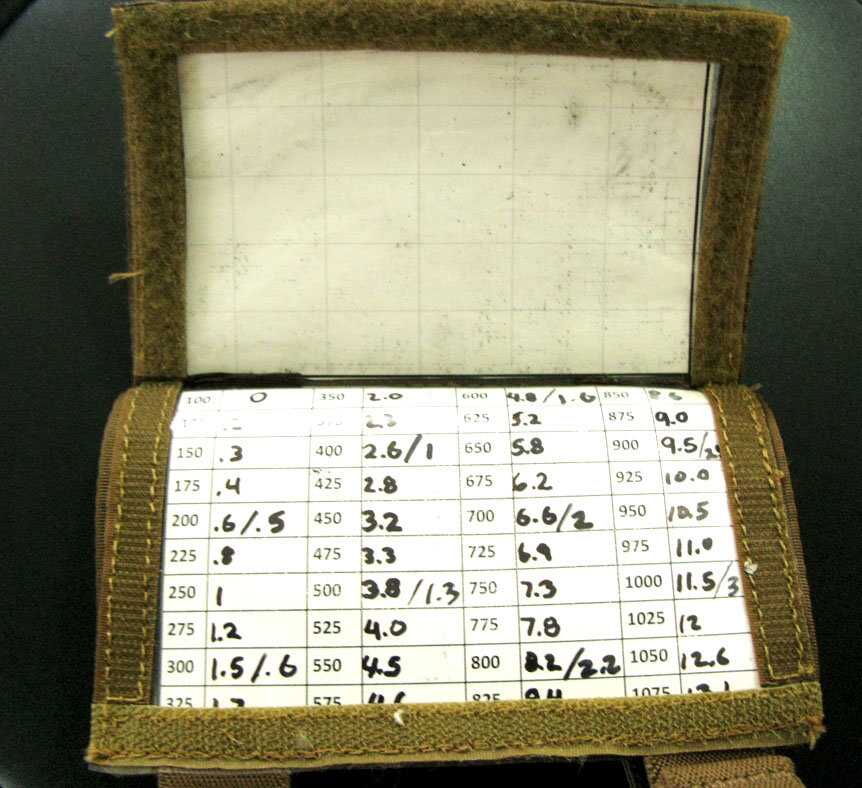 100 0 350 2.0 600 4.8/1.6 850
625 5.2 875 9.0
150 .3 400 2.6/1 650 5.8 900 9.5/
175 .4 425 2.8 675 6.2 925 10.0
200 .6/.5 450 3.2 700 6.6/2 950 10.5
225 .8 475 3.3 725 6.9 975 11.0
250 1 500 3.8/1.3 750 7.3 1000 11.5/3
275 1.2 525 4.0 775 7.8 1025 12
300 1.5/.6 550 4.5 800 8.2/2.2 1050 12.6
325 575 825 1075